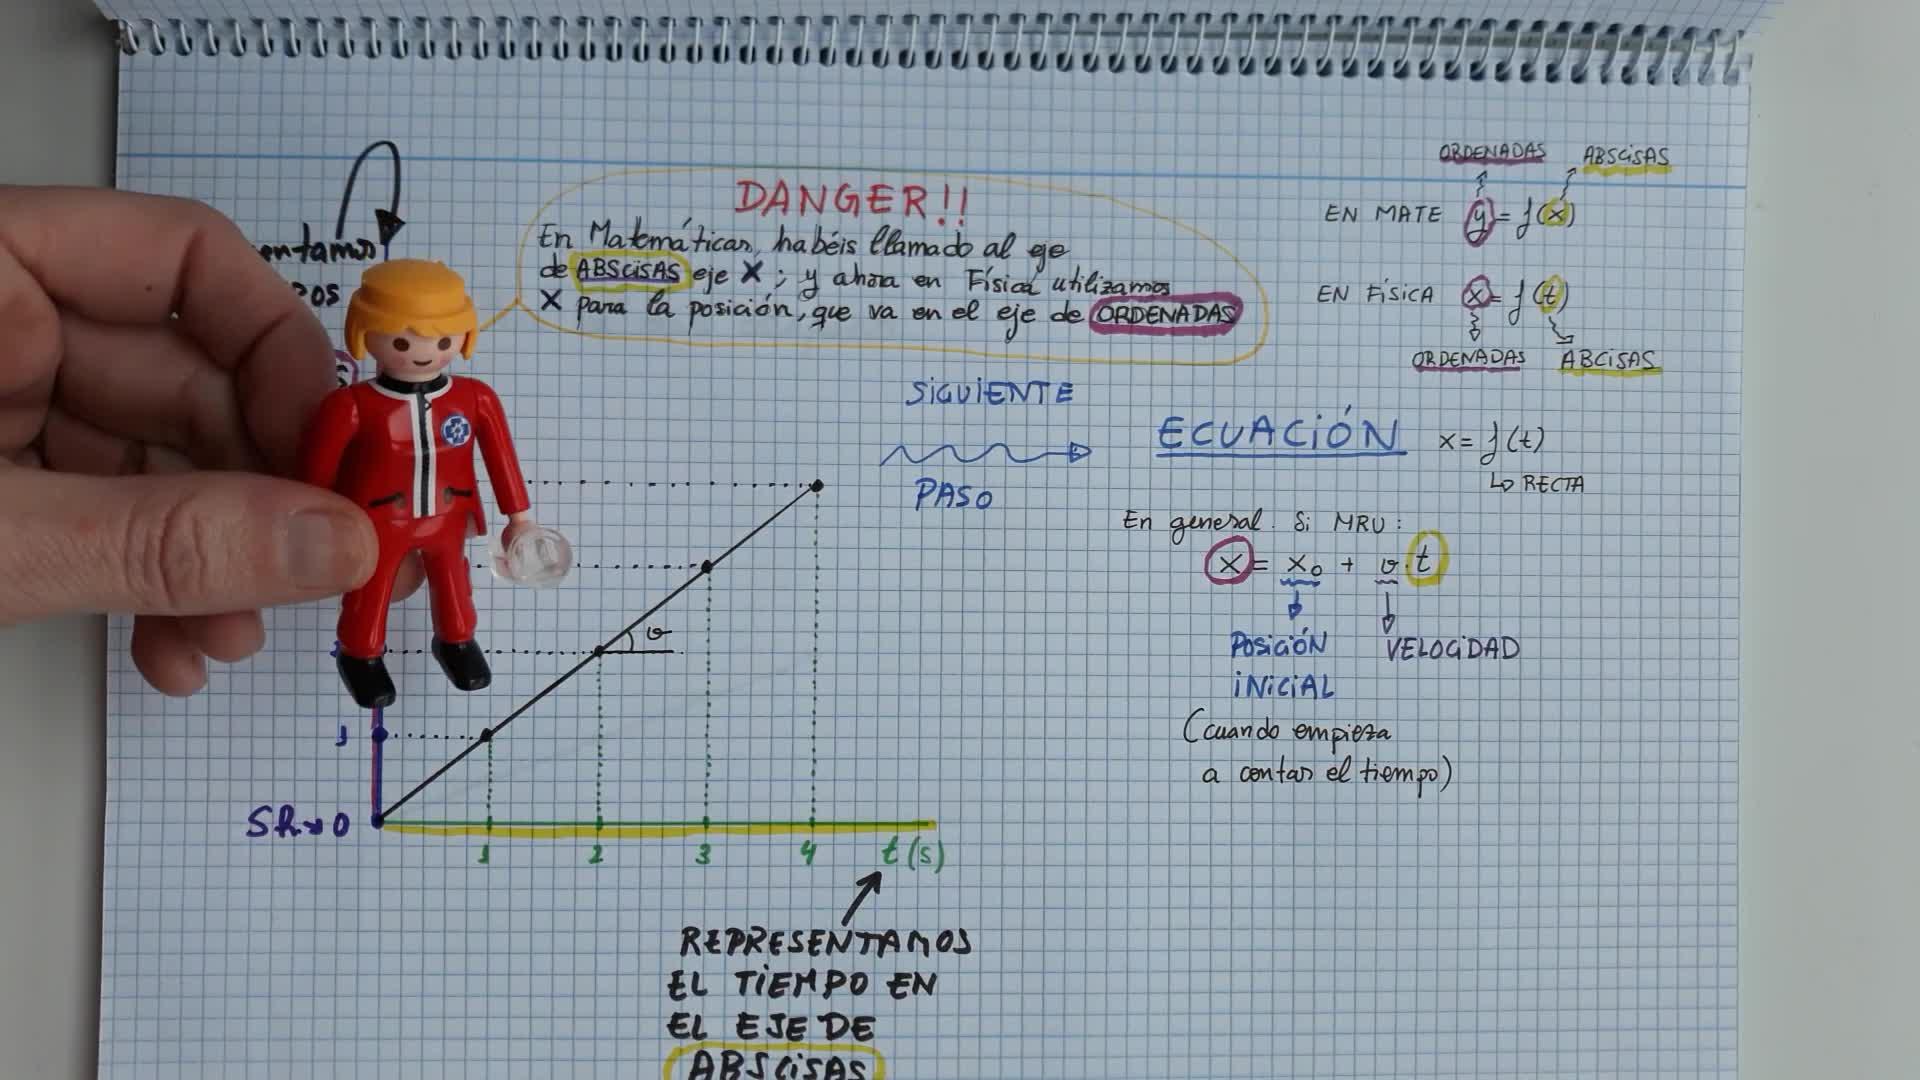 DANGER!!
En Matemáticas, habéis llamado al eje
de ABSCISAS eje X ; y ahora en Física utilizamos
X para la posición, que va en el eje de ORDENADAS
ORDENADAS ABSCISAS
EN MATE y = f(x)
EN FÍSICA x = f(t)
ORDENADAS ABCISAS
SIGUIENTE
PASO
ECUACIÓN x = f(t)
↳ RECTA
En general. Si MRU:
x = x₀ + v·t
POSICIÓN
INICIAL
VELOCIDAD
(cuando empieza
a contar el tiempo)
v
1
SR→0
1 2 3 4 t(s)
REPRESENTAMOS
EL TIEMPO EN
EL EJE DE
ABSCISAS